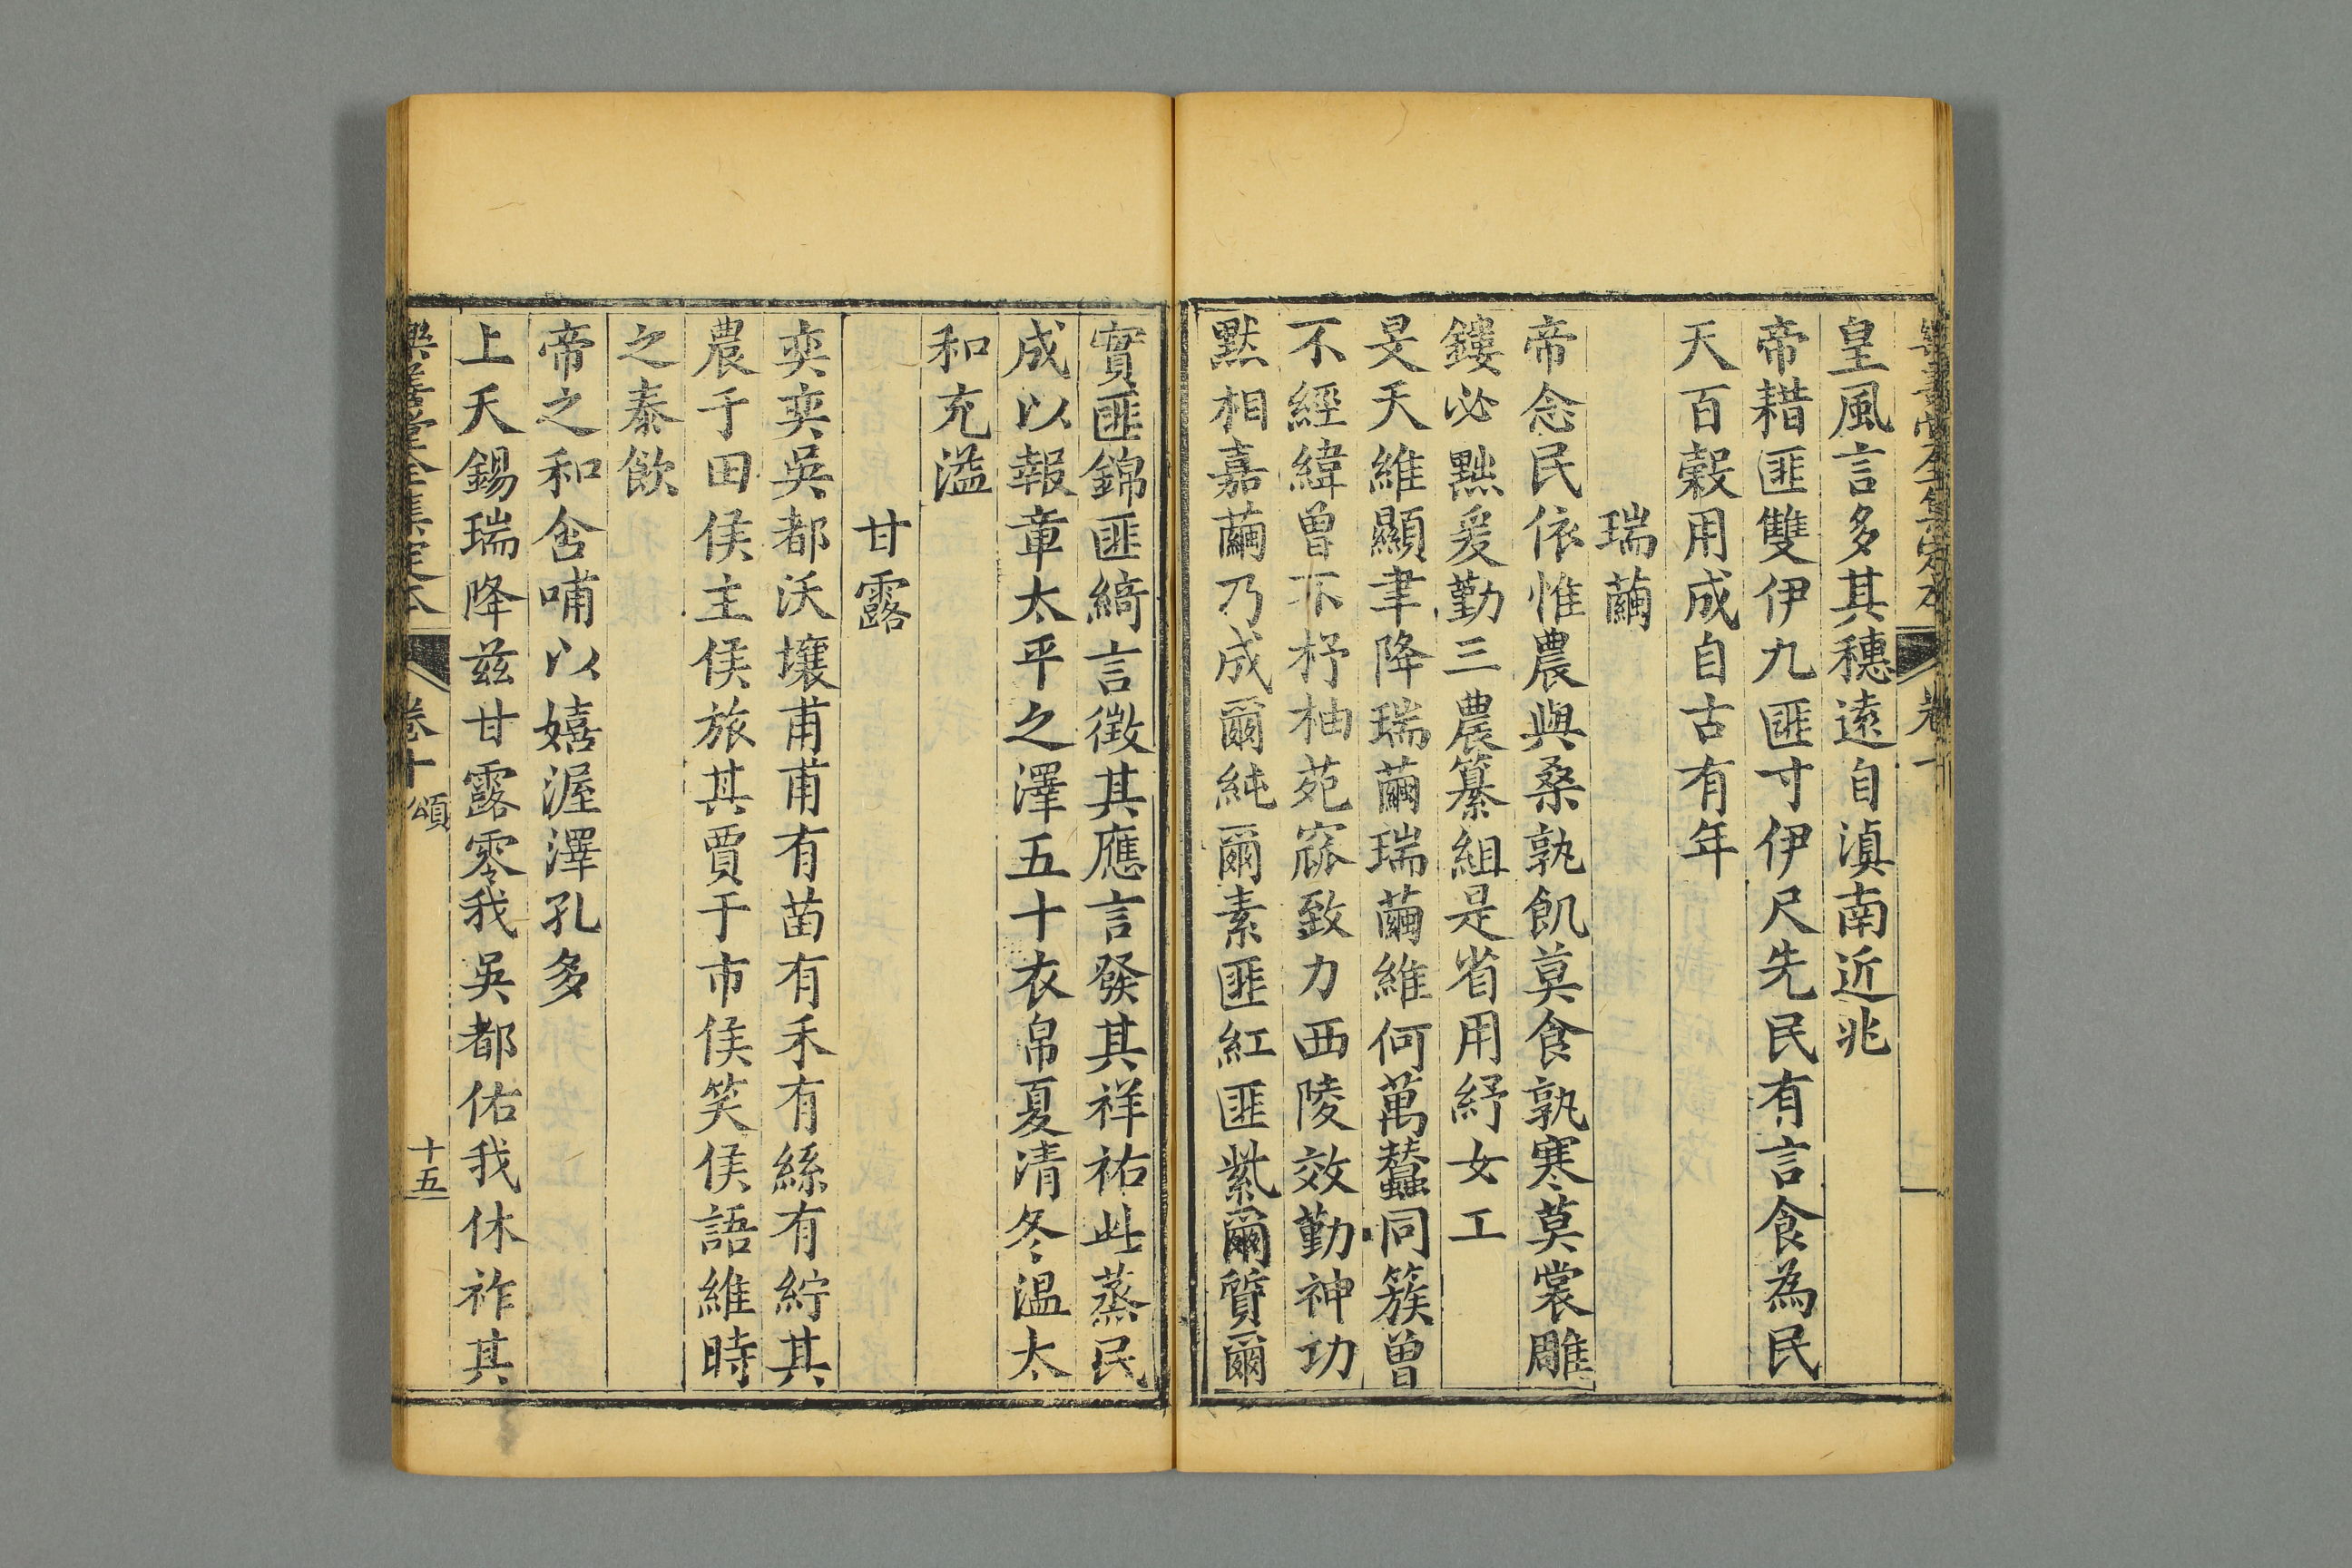 樂善堂全集定本 卷十
皇風言多其穗遠自滇南近兆
帝耤匪雙伊九匪寸伊尺先民有言食為民
天百穀用成自古有年
瑞繭
帝念民依惟農與桑孰飢莫食孰寒莫裳雕
鏤必黜爰勤三農纂組是省用紓女工
旻天維顯聿降瑞繭瑞繭維何萬蠶同簇曾
不經緯曾不杼柚苑窳致力西陵效勤神功
黙相嘉繭乃成爾純爾素匪紅匪紫爾質爾
實匪錦匪綺言徵其應言發其祥祐此蒸民
成以報章太平之澤五十衣帛夏清冬溫太
和充溢
甘露
奕奕吳都沃壤甫甫有苗有禾有絲有紵其
農于田俟主俟旅其賈于市俟笑俟語維時
之泰飲
帝之和含哺以嬉渥澤孔多
上天錫瑞降兹甘露零我吳都佑我休祚其
樂善堂全集定本 卷十 頌 十五